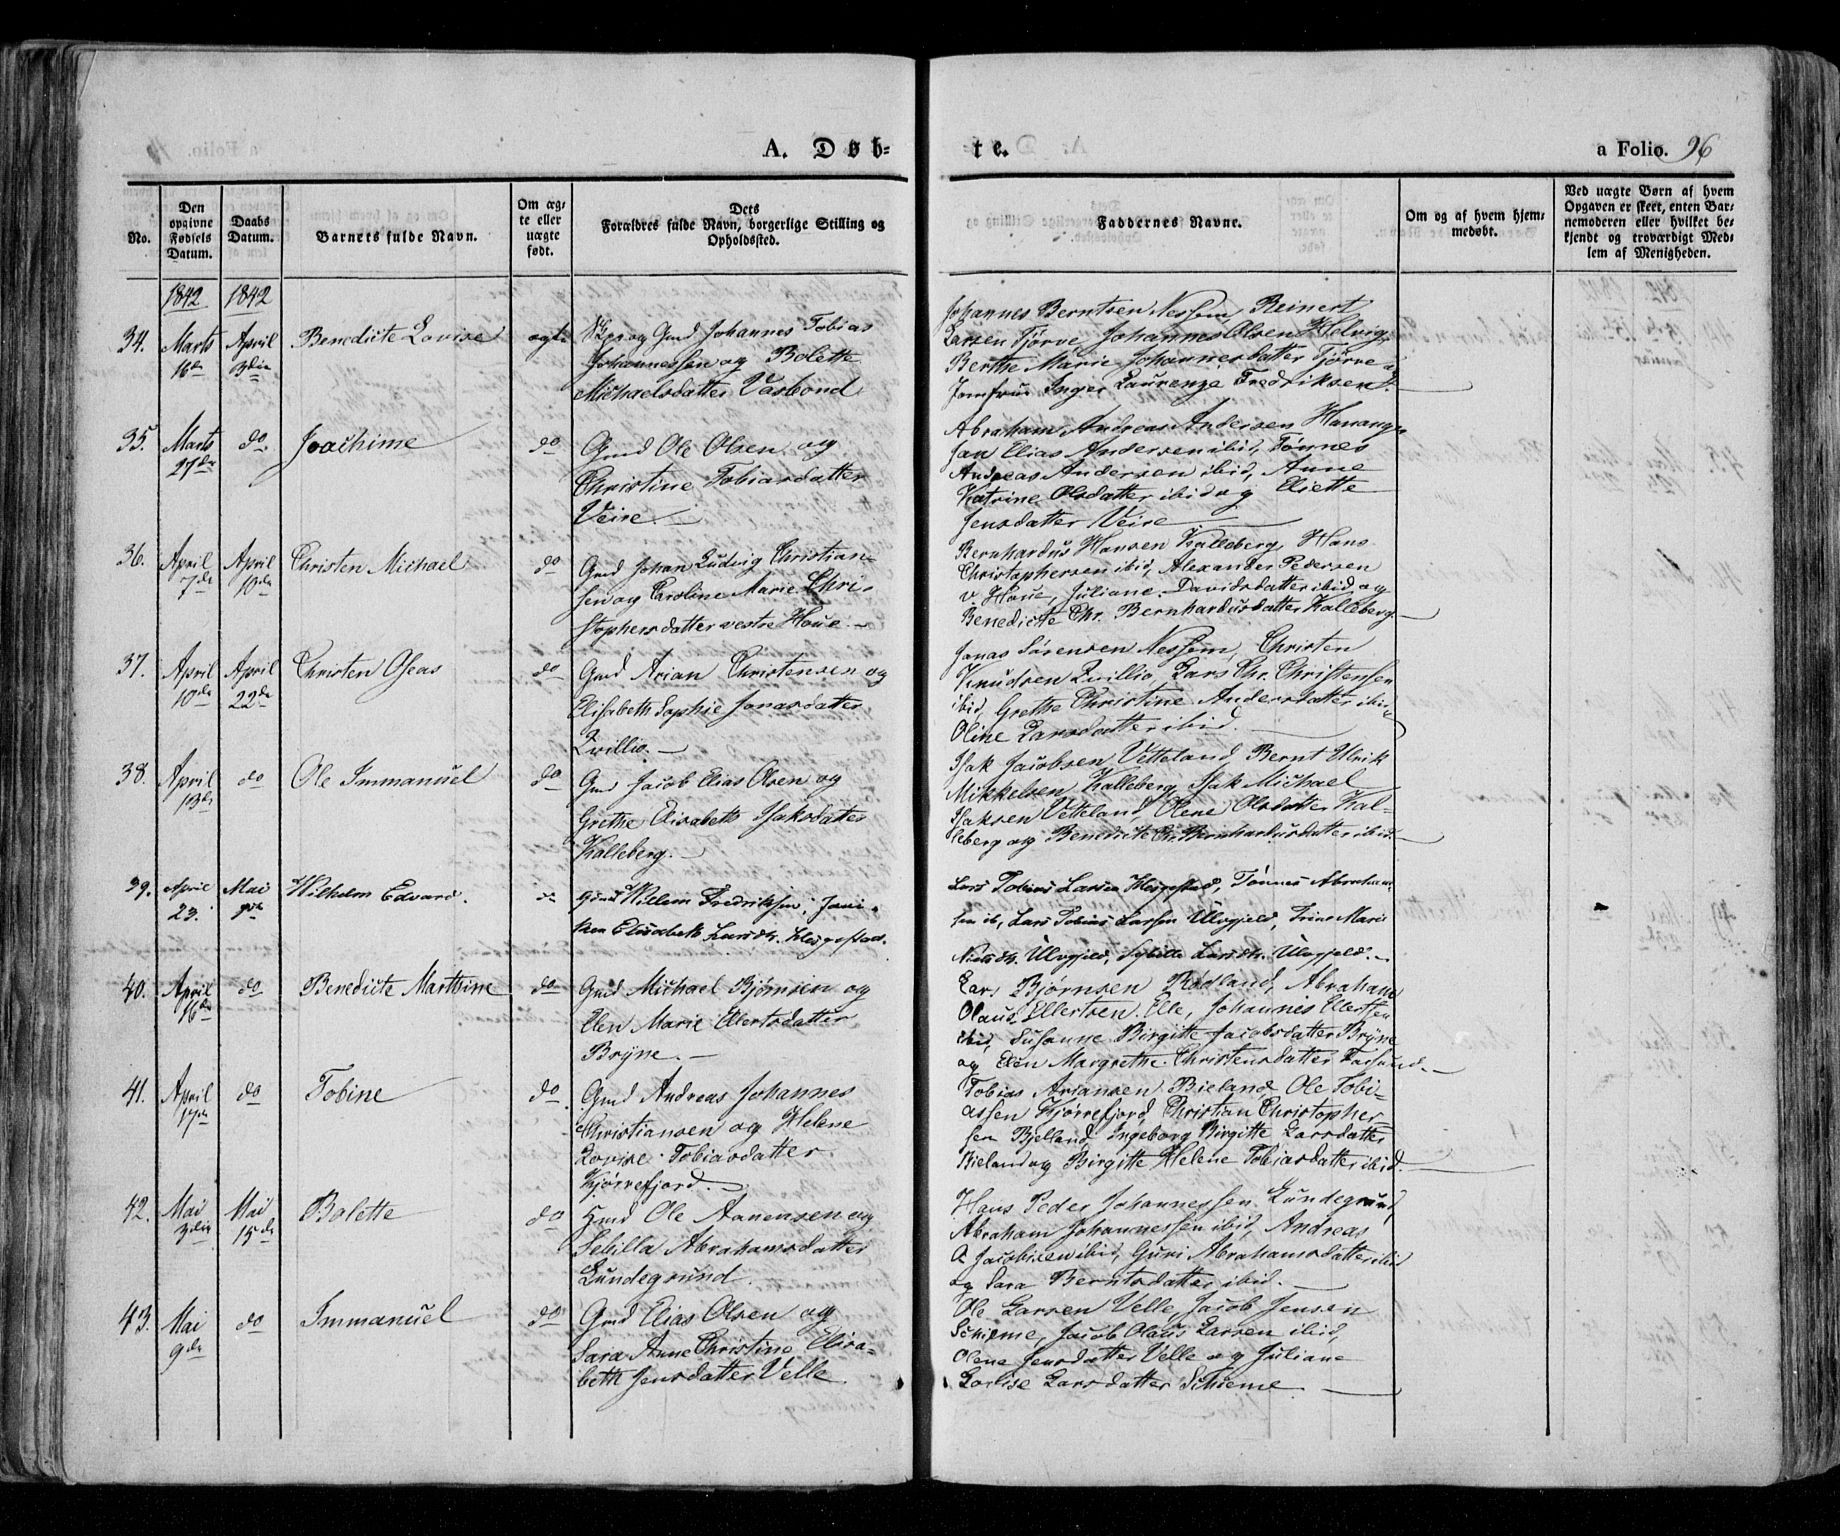 A. Døb-
te.
a Folio. 96
No.
Den opgivne Fødsels Datum.
Daabs Datum.
Barnets fulde Navn.
Om ægte eller uægte født.
Dets
Forældres fulde Navn, borgerlige Stilling og
Opholdssted.
Faddernes Navne.
Om og af hvem hjemmedøbt.
Ved uægte Børn af hvem
Opgaven er skeet, enten Bar-
nemoderen eller hvilket be-
kjendt og troværdigt Med-
lem af Menigheden.
1842 1842
34. Marts 16de April 3die Benedicte Lovise ægte
og Gmd Johannes Tobias
Johannessen og Bolette
Michaelsdatter Vasbond
Johannes Berntsen Nessem, Reinert
Larsen Tjørve, Johannes Olsen Helvig,
Berthe Marie Johannesdatter Tjørve og
Jomfrue Inger Laurenze Fredriksen
35. Marts 27de do Joachime do
Gmd Ole Olsen og
Christine Tobiasdatter
Veire
Abraham Andreas Andersen Hanange
Jan Elias Andersen ibid, Tønnes
Andreas Andersen ibid, Anne
Katrine Olsdatter ibid og Eliette
Jensdatter Veire
36. April 7de April 10de Christen Michael do
Gmd Johan Ludvig Christian-
sen og Caroline Marie Chri-
stophersdatter vestre Houe
Bernhardus Hansen Kalleberg, Hans
Christophersen ibid, Alexander Pedersen
v Houe, Juliane Davidsdatter ibid og
Benedicte Chr. Bernhardusdatter Kalleberg.
37. April 10de April 22de Christen Oseas do
Gmd Arian Christensen og
Elisabeth Sophie Jonasdatter
Qvillio.
Jonas Sørensen Nessem, Christen
Knudsen Qvillio, Lars Chr. Christensen
ibid, Grethe Christine Andersdatter ibid
Oline Larsdatter ibid.
38. April 13de do Ole Immanuel do
Gmd Jacob Elias Olsen og
Grethe Elisabeth Isaksdatter
Kalleberg.
Isak Jacobsen Vetteland, Bernt Ulrik
Mikkelsen Kalleberg, Isak Michael
Isaksen Vetteland, Olene Olsdatter Kal-
leberg og Benedicte Chr. Bernhardusdatter ibid.
39. April 23. Mai Wilhelm Edvard. do
Gmd Willem Fredriksen, Jani-
ken Elisabeth Larsdtr. Helgestad.
Lars Tobias Larsen Helgestad, Tønnes Abraham-
sen ib, Lars Tobias Larsen Ulvgjeld, Trine Marie
Nielsdtr. Ulvgjeld, Sybille Larsdtr. Ulvgjeld.
40. April 16de do Benedicte Marthine do
Gmd Michael Bjørnsen og
Elen Marie Ellertsdatter
Brÿne.
Lars Bjørnsen Rødland, Abraham
Olaus Ellertsen Elle, Johannes Ellertsen
ibid, Susanne Birgitte Jacobsdatter Brÿne
og Elen Margrethe Christensdatter Farsund.
41. April 17de do Tobine do
Gmd Andreas Johannes
Christiansen og Helene
Lovise Tobiasdatter
Kjørrefjord.
Tobias Ariansen Bieland, Ole Tobi-
assen Kjørrefjord, Christian Christopher-
sen Bjelland, Ingeborg Birgitte Larsdatter
Bieland og Birgitte Helene Tobiasdatter ibid.
42. Mai 3die Mai 15de Bolette do
Gmd Ole Aanensen og
Sebilla Abrahamsdatter
Lundegrund.
Hans Peder Johannessen Lundegrund,
Abraham Johannessen ibid, Andreas
O Jacobsen ibid, Guri Abrahamsdatter ibid
og Sara Berntsdatter ibid.
43. Mai 9de do Immanuel do
Gmd Elias Olsen og
Sara Anne Christine Elisa-
beth Jensdatter Velle
Ole Larsen Velle, Jacob Jensen
Schieme, Jacob Olaus Larsen ibid,
Olene Jensdatter Velle og Juliane
Lovise Larsdatter Schieme.